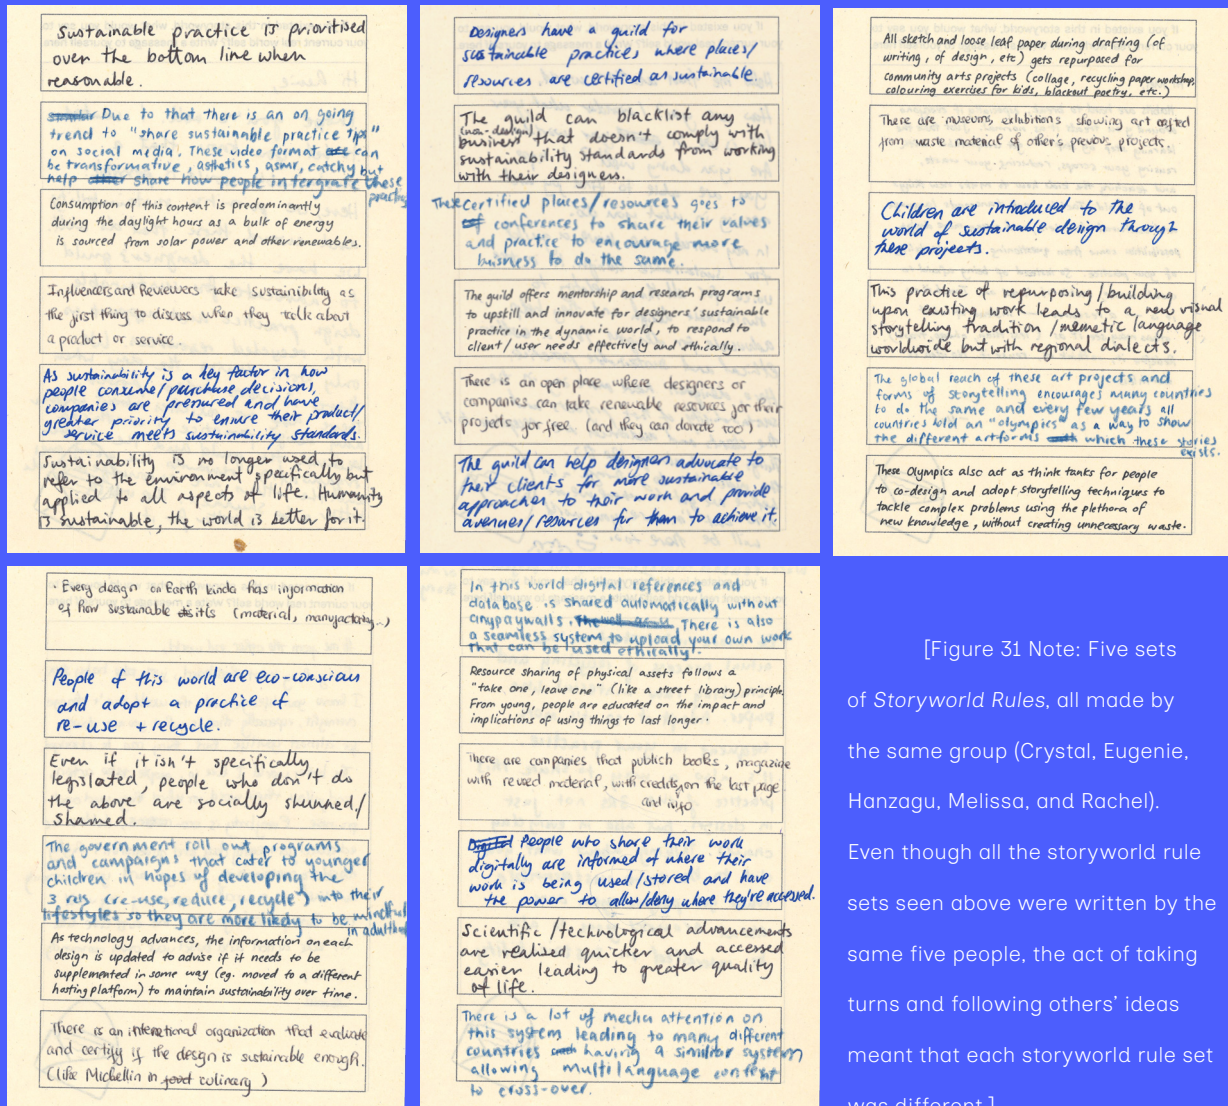 Sustainable practice is prioritised
over the bottom line when
reasonable.
Due to that there is an on going
trend to "share sustainable practice tips"
on social media. These video format can
be transformative, asthetics, asmr, catchy but
help share how people intergrate these
Consumption of this content is predominantly
during the daylight hours as a bulk of energy
is sourced from solar power and other renewables.
Influencers and Reviewers take sustainibility as
the first thing to discuss when they talk about
a product or service.
As sustainability is a key factor in how
people consume/purchase decisions,
companies are pressured and have
greater priority to ensure their product/
service meets sustainability standards.
Sustainability is no longer used to
refer to the environment specifically but
applied to all aspects of life. Humanity
is sustainable, the world is better for it.
Designers have a guild for
sustainable practices where places/
resources are certified as sustainable.
The guild can blacklist any
(non-design)
business that doesn't comply with
sustainability standards from working
with their designers.
These certified places/resources goes to
conferences to share their values
and practice to encourage more
buisness to do the same.
The guild offers mentorship and research programs
to upskill and innovate for designers' sustainable
practice in the dynamic world, to respond to
client/user needs effectively and ethically.
There is an open place where designers or
companies can take renewable resources for their
projects for free (and they can donate too)
The guild can help designers advocate to
their clients for more sustainable
approaches to their work and provide
avenues/resources for them to achieve it.
All sketch and loose leaf paper during drafting (of
writing, of design, etc) gets repurposed for
community arts projects (collage, recycling paper workshop,
colouring exercises for kids, blackout poetry, etc.)
There are museums, exhibitions showing art crafted
from waste material of other's previous projects.
Children are introduced to the
world of sustainable design through
these projects.
This practice of repurposing/building
upon existing work leads to a new visual
storytelling tradition/memetic language
worldwide but with regional dialects.
The global reach of these art projects and
forms of storytelling encourages many countries
to do the same and every few years all
countries hold an "olympics" as a way to show
the different artforms which these stories
exists.
These Olympics also act as think tanks for people
to co-design and adopt storytelling techniques to
tackle complex problems using the plethora of
new knowledge, without creating unnecessary waste.
· Every design on Earth kinda has information
of how sustainable it is (material, manufactoring~)
People of this world are eco-conscious
and adopt a practice of
re-use + recycle.
Even if it isn't specifically
legislated, people who don't do
the above are socially shunned/
shamed.
The government roll out programs
and campaigns that cater to younger
children in hopes of developing the
3 rs (re-use, reduce, recycle") into their
lifestyles so they are more likely to be mindful
in adulthood
As technology advances, the information on each
design is updated to advise if it needs to be
supplemented in some way (eg. moved to a different
hosting platform) to maintain sustainability over time.
There is an international organization that evaluate
and certify if the design is sustainable enough.
(like Michellin in culinary)
In this world digital references and
database is shared automatically without
any paywalls. There is also
a seamless system to upload your own work
that can be used ethically!
Resource sharing of physical assets follows a
"take one, leave one" (like a street library) principle.
From young, people are educated on the impact and
implications of using things to last longer.
There are companies that publish books, magazine
with reused material, with credits on the last page.
and info
People who share their work
digitally are informed of where their
work is being used/stored and have
the power to allow/deny where they're accessed.
Scientific/technological advancements
are realised quicker and accessed
easier leading to greater quality
of life.
There is a lot of media attention on
this system leading to many different
countries having a similar system
allowing multilanguage content
to cross-over.
[Figure 31 Note: Five sets
of Storyworld Rules, all made by
the same group (Crystal, Eugenie,
Hanzagu, Melissa, and Rachel).
Even though all the storyworld rule
sets seen above were written by the
same five people, the act of taking
turns and following others' ideas
meant that each storyworld rule set
was different.]